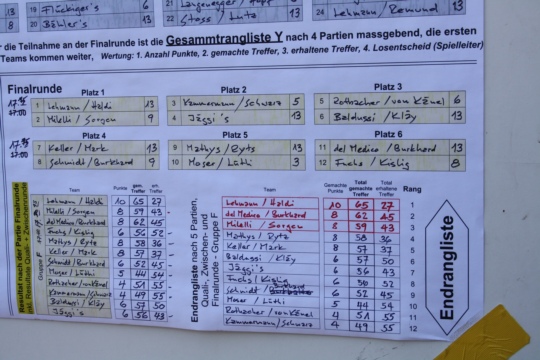 19 Flückiger's 6
20 Bähler's 13
22 Stoss / Lutz 13
24 Lehmann / Remund 13
die Teilnahme an der Finalrunde ist die Gesammtrangliste Y nach 4 Partien massgebend, die ersten
Teams kommen weiter, Wertung: 1. Anzahl Punkte, 2. gemachte Treffer, 3. erhaltene Treffer, 4. Losentscheid (Spielleiter)
Finalrunde
Platz 1 Platz 2 Platz 3
1 Lehmann / Holdi 13
2 Milelli / Sorgen 9
3 Kammermann / Schwarz 5
4 Jäggi's 13
5 Rothacher / von Känel 6
6 Baldussi / Kläy 13
Platz 4 Platz 5 Platz 6
7 Keller / Mark 13
8 Schmidt / Burkhard 9
9 Mathys / Rytz 13
10 Moser / Lüthi 3
11 del Medico / Burkhard 13
12 Fuchs / Kislig 8
Resultat nach der Partie Finalrunde
Team Punkte gem. Treffer erh. Treffer
Lehmann / Holdi 10 65 27
Milelli / Sorgen 8 59 43
del Medico / Burkhard 8 62 45
Fuchs / Kislig 6 56 52
Mathys / Rytz 8 58 36
Keller / Mark 8 57 37
Schmidt / Burkhard 6 62 45
Moser / Lüthi 5 44 54
Rothacher / von Känel 4 51 55
Kammermann / Schwarz 4 49 55
Baldussi / Kläy 6 57 50
Jäggi's 6 56 43
Endrangliste nach 5 Partien,
Quali-, Zwischen- und
Finalrunde - Gruppe F
Team Gemachte Punkte Total gemachte Treffer Total erhaltene Treffer Rang
Lehmann / Holdi 10 65 27 1
del Medico / Burkhard 8 62 45 2
Milelli / Sorgen 8 59 43 3
Mathys / Rytz 8 58 36 4
Keller / Mark 8 57 37 5
Baldussi / Kläy 6 57 50 6
Jäggi's 6 56 43 7
Fuchs / Kislig 8
Schmidt / Burkhard 6 52 45 9
Moser / Lüthi 5 44 54 10
Rothacher / von Känel 4 51 55 11
Kammermann / Schwarz 4 49 55 12
Endrangliste